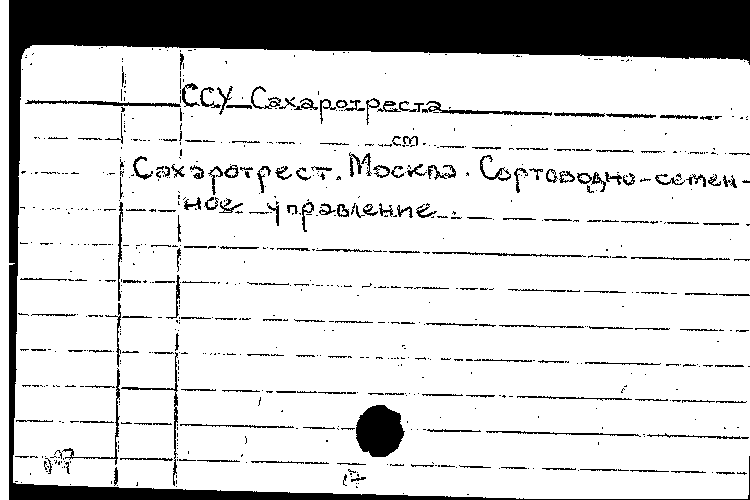 ССУ Сахаротреста
ст.
Сахаротрест. Москва. Сортоводно-семен-
ное управление.